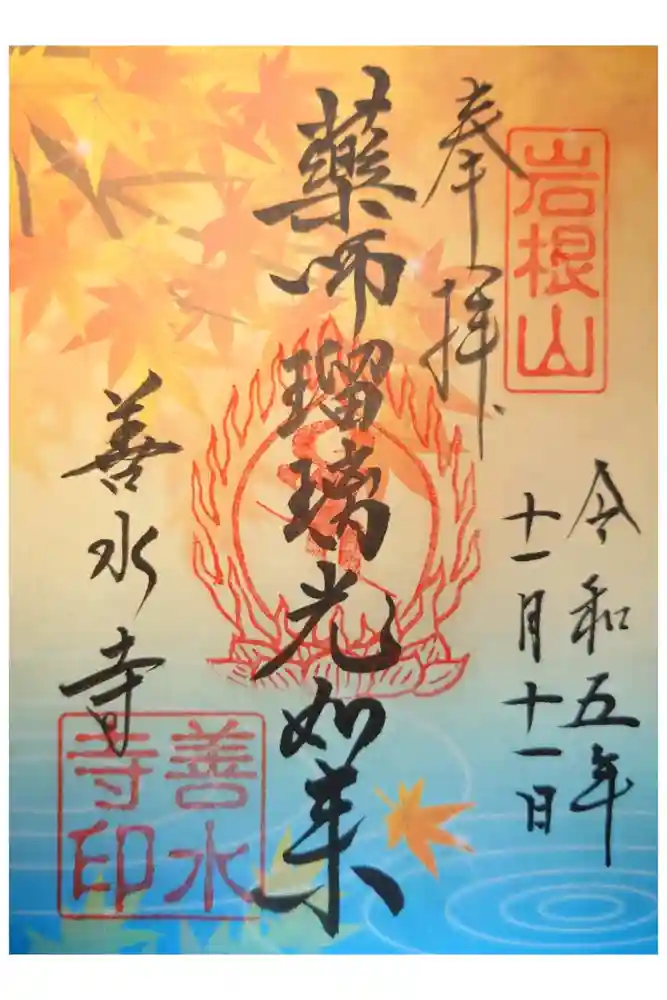 岩根山
奉拝
令和五年
十一月十一日
薬師瑠璃光如来
善水寺
善水寺印